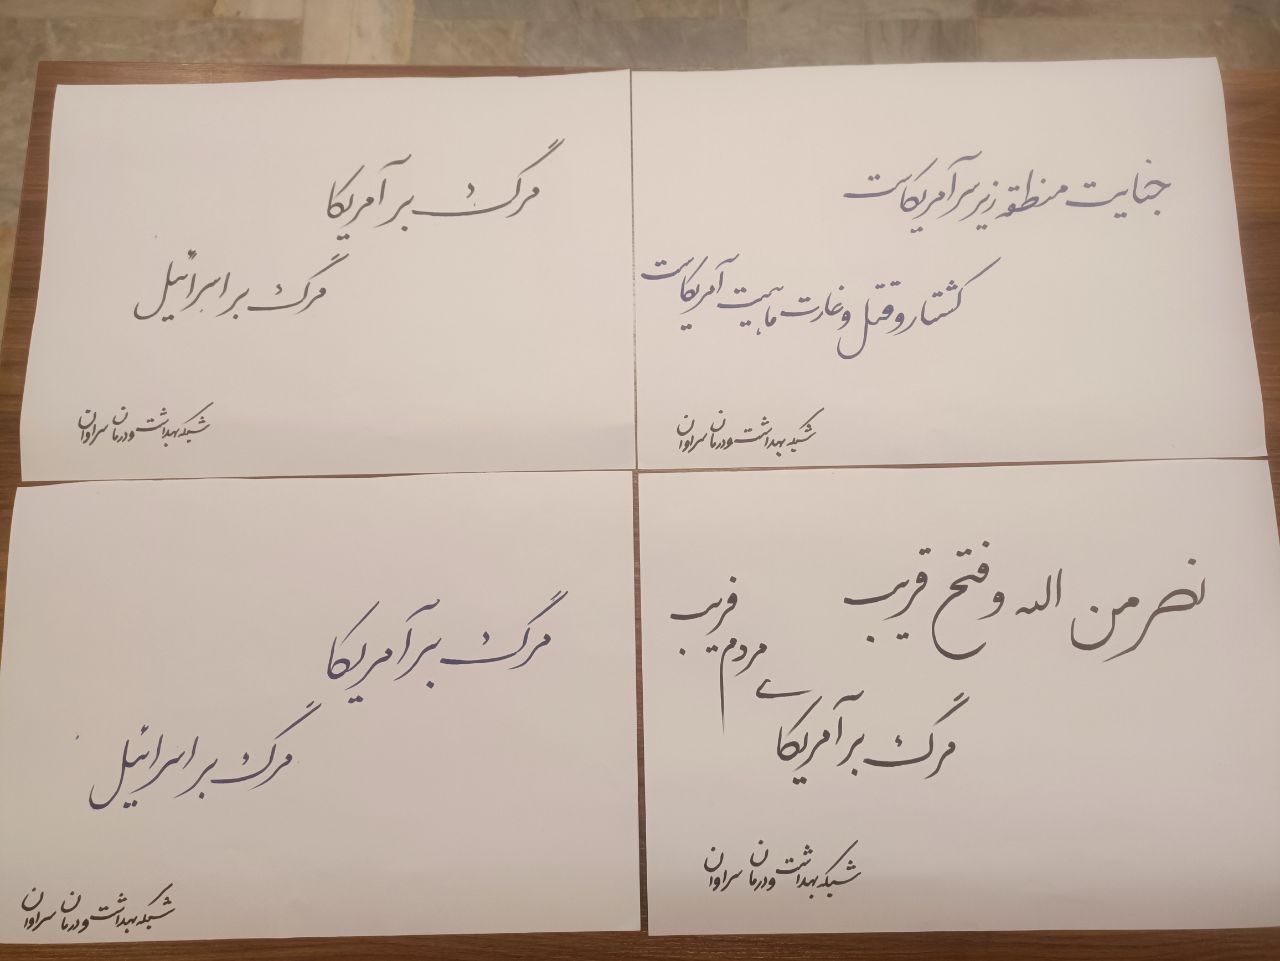 مرگ بر آمریکا
مرگ بر اسرائیل
شبکه بهداشت و درمان سراوان
جنایت منطقه زیر سر آمریکاست
کشتار و قتل و غارت ماهیت آمریکاست
شبکه بهداشت و درمان سراوان
مرگ بر آمریکا
مرگ بر اسرائیل
شبکه بهداشت و درمان سراوان
نصر من الله و فتح قریب
مرگ بر آمریکای مردم فریب
شبکه بهداشت و درمان سراوان